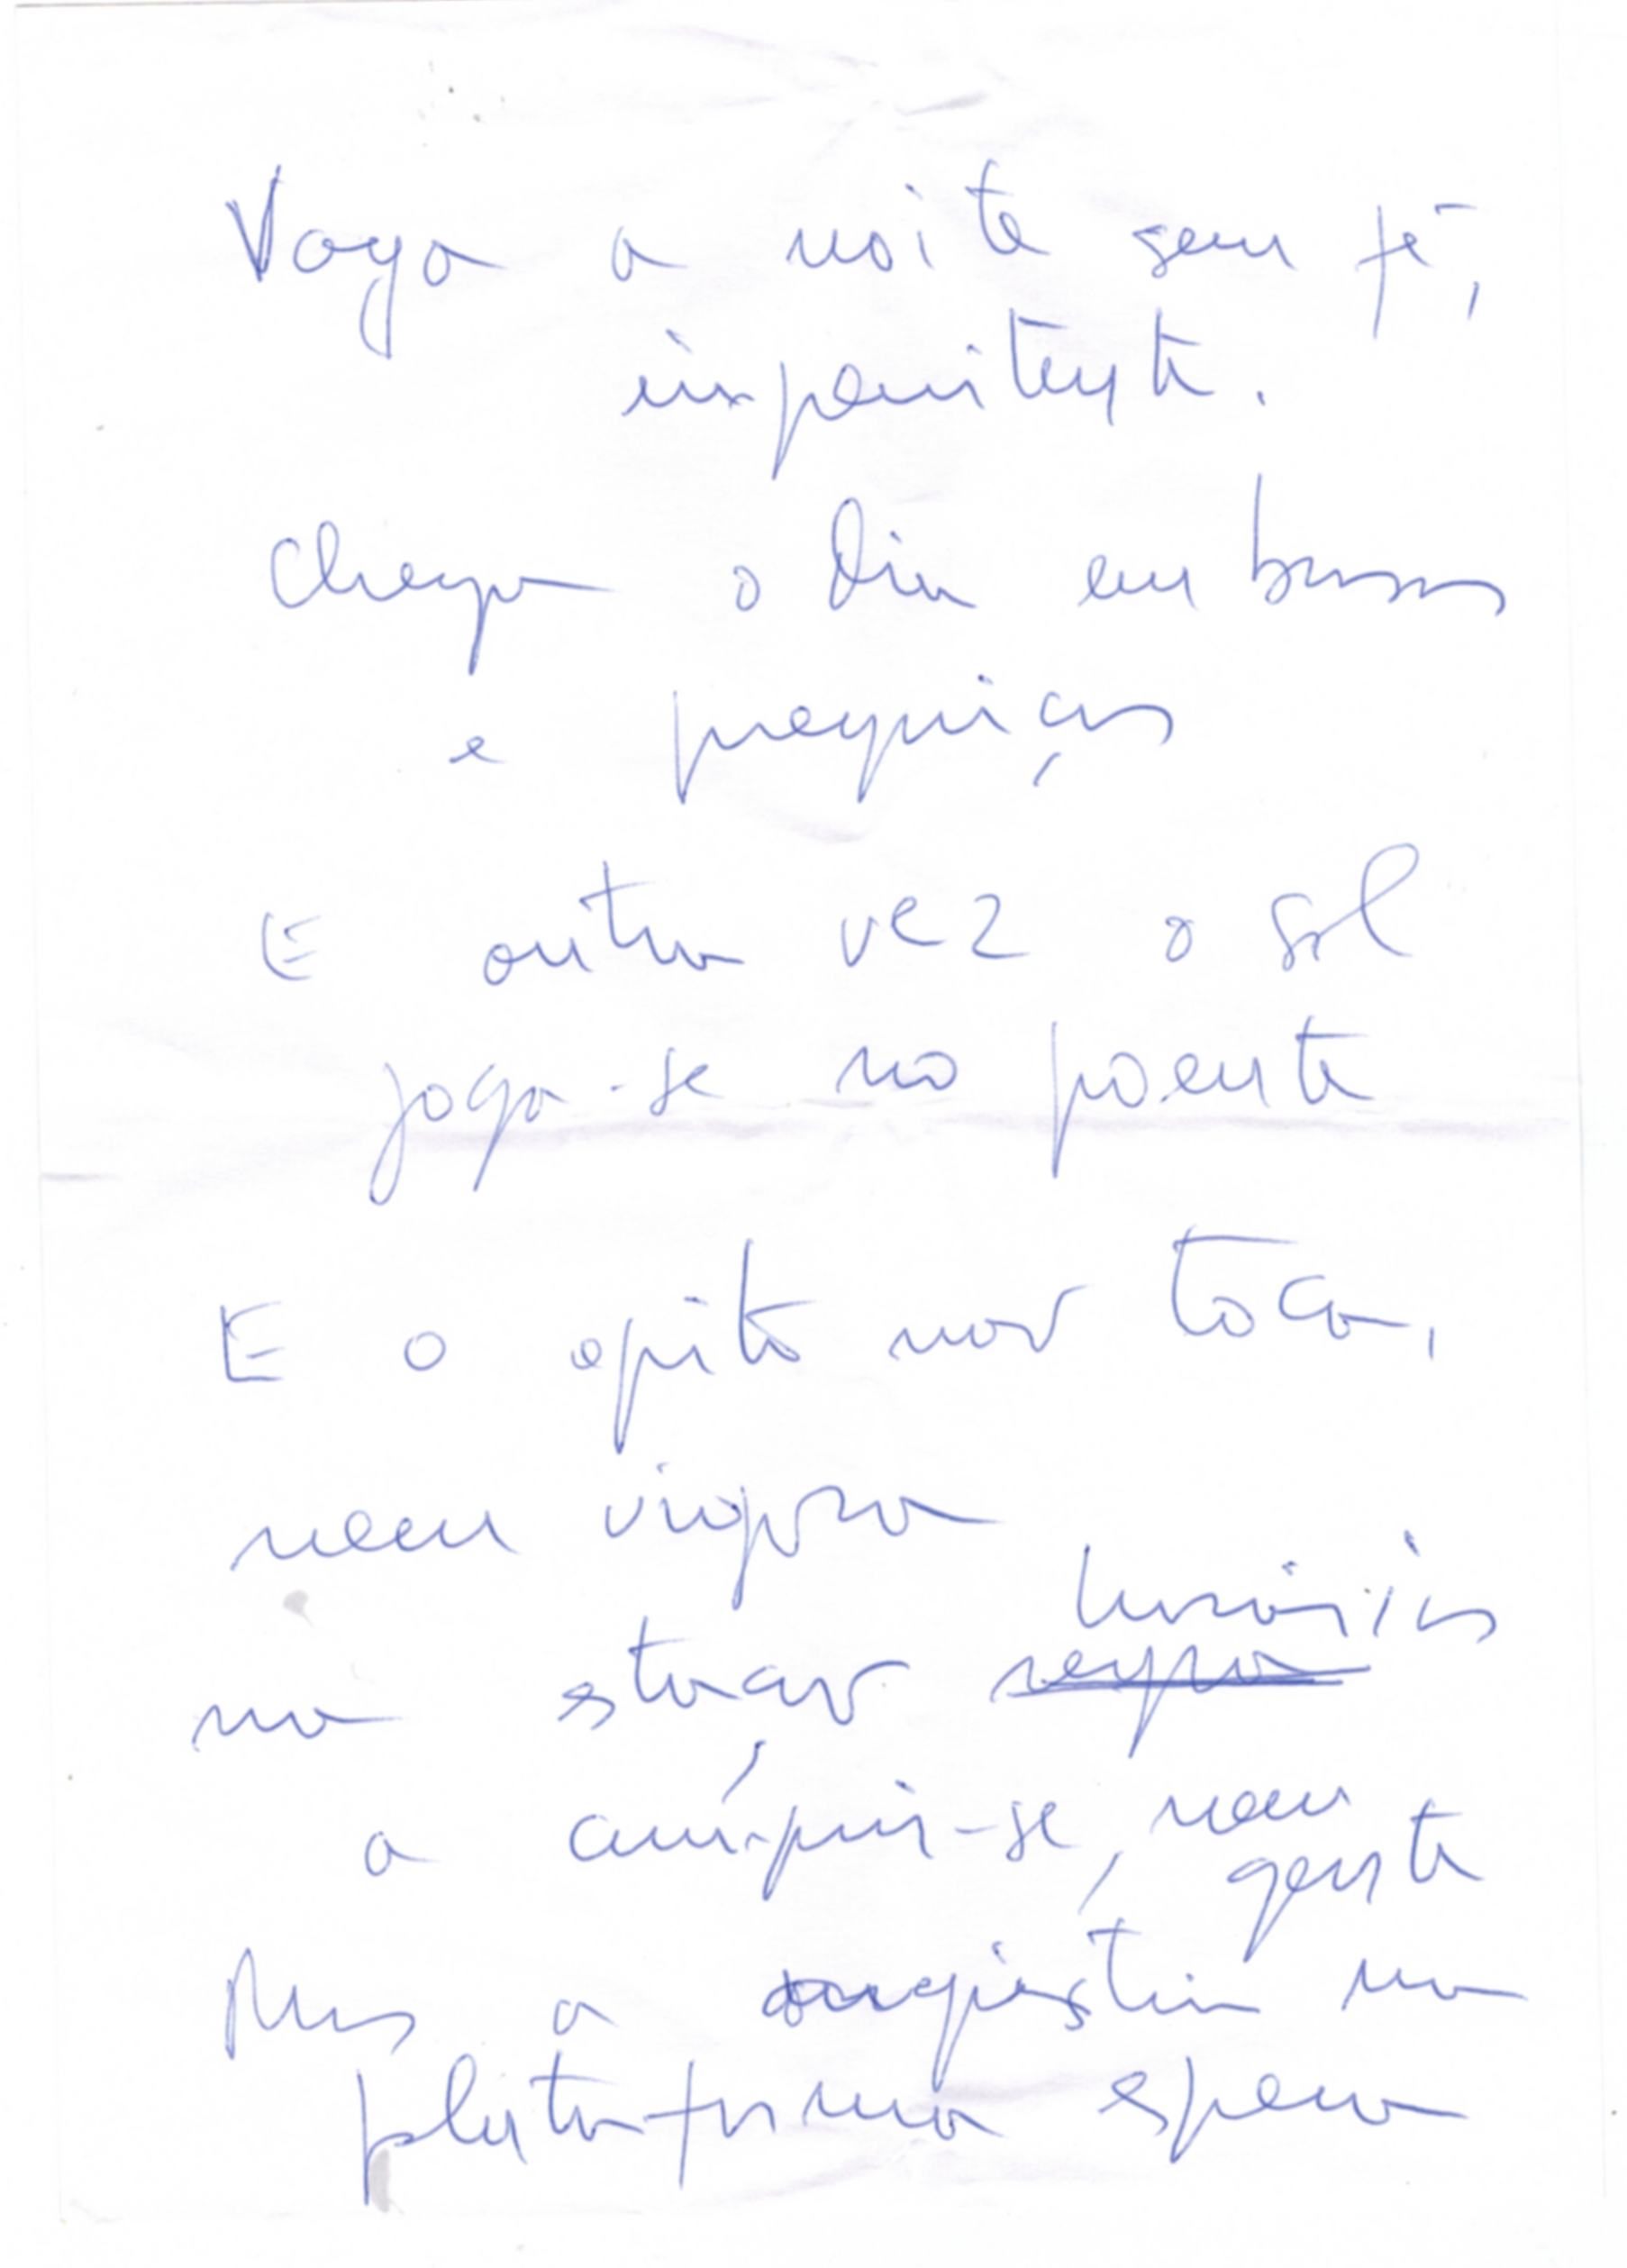 Vaga a noite sem fé,
impenitente.
Chega o dia em brumas
e preguiças
E outra vez o sol
joga-se no poente
E o apito não toca,
nem vigora
luxúrias
na estação
a cumprir-se, nem
gente
Mas a angústia na
plataforma espera